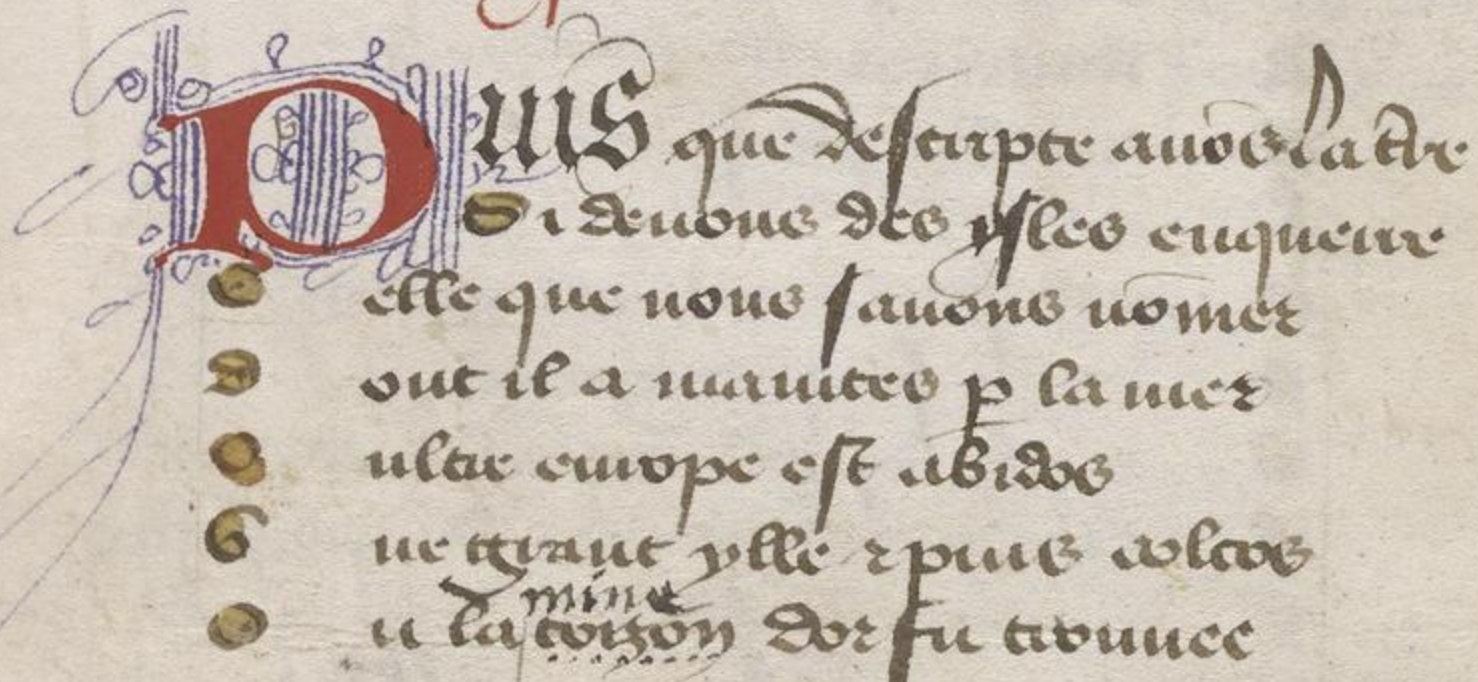 Puis que descripte auõs la t̃re
Si deuons des ysles enquerre
Celle que nous sauons nõmer
Dont il a maintes ꝑ la mer
Oultre europe est abidos
Une grant ylle ⁊ puis colcos
mine
Ou la toizon dor fu trouuee